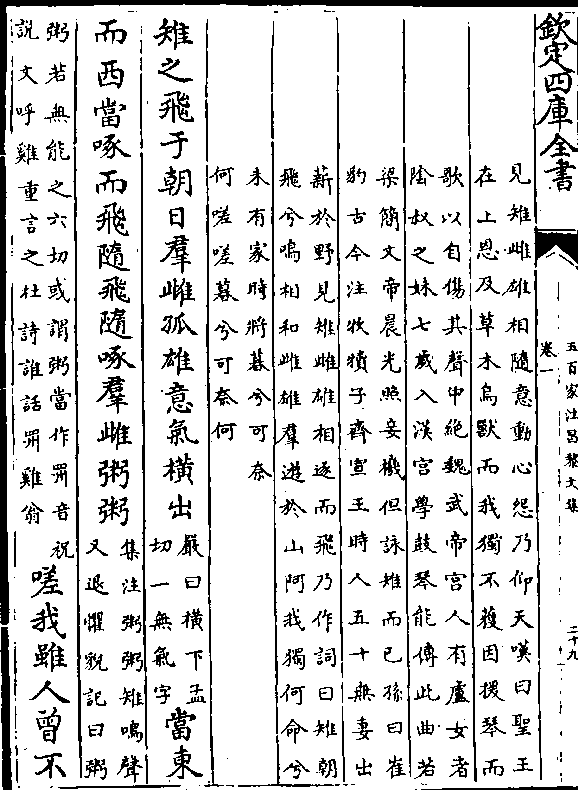 欽定四庫全書
五百家注昌黎文集
卷一
二十九
見雉雌雄相隨意動心怨乃仰天嘆曰聖王
在上恩及草木鳥獸而我獨不獲因援琴而
歌以自傷其聲中絶魏武帝宮人有盧女者
陰叔之妹七歲入漢宮學鼓琴能傳此曲若
梁簡文帝晨光照妾機但詠雉而已孫曰崔
豹古今注牧犢子齊宣王時人五十無妻出
薪於野見雉雌雄相逐而飛乃作詞曰雉朝
飛兮鳴相和雌雄羣遊於山阿我獨何命兮
未有家時將暮兮可奈
何嗟嗟暮兮可奈何
雉之飛于朝日羣雌孤雄意氣橫出
嚴曰橫下孟
切一無氣字
當東
而西當啄而飛隨飛隨啄羣雌粥粥
集注粥粥雉鳴聲
又退懼貌記曰粥
粥若無能之六切或謂粥當作喌音祝
說文呼雞重言之杜詩誰話喌雞翁
嗟我雖人曾不